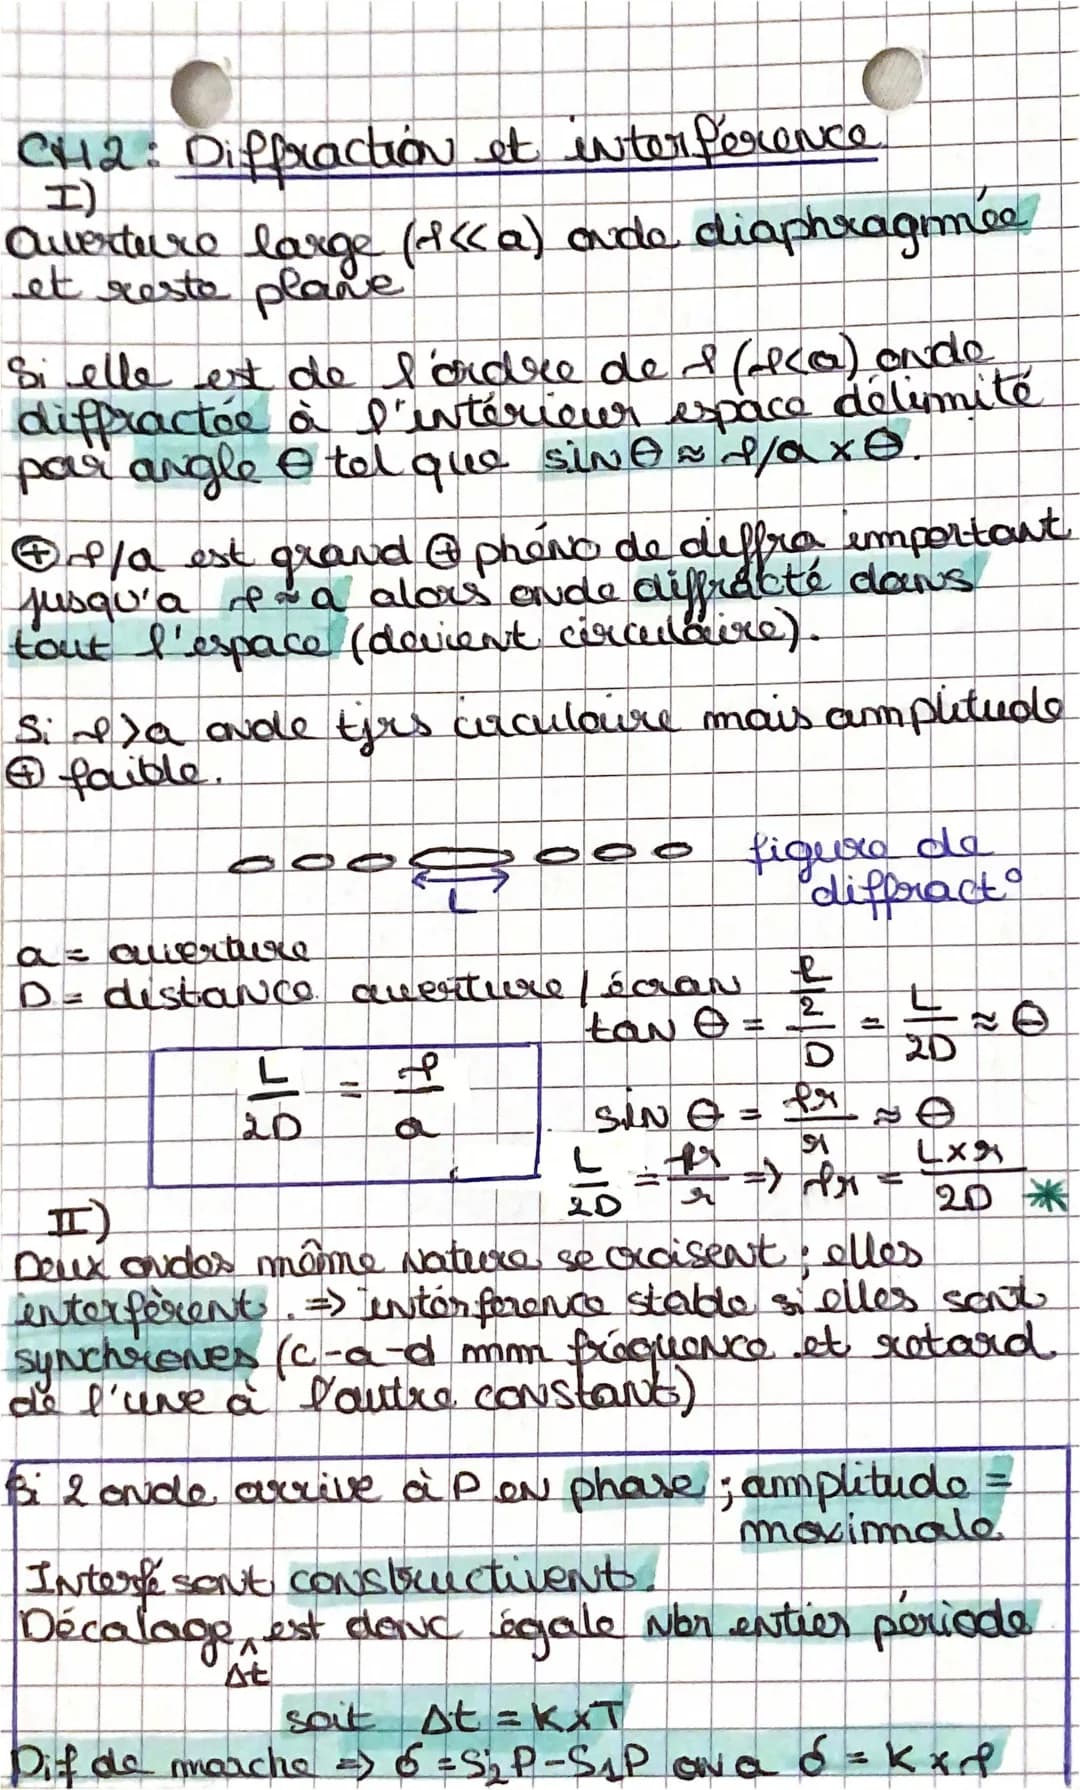 CH2: Diffraction et interférence
I)
Ouverture large (λ<<a) onde diaphragmée
et reste plane
Si elle est de l'ordre de λ (λ<a) onde
diffractée à l'intérieur espace délimité
par angle θ tel que sinθ ≈ λ/a x θ.
⊕ λ/a est grand ⊕ phéno de diffra important
jusqu'a λ≈a alors onde diffracté dans
tout l'espace (devient circulaire).
Si λ>a onde tjrs circulaire mais amplitude
⊕ faible.
figure de
diffract°
L
a = ouverture
D = distance ouverture / écran
tan θ = (l/2)/D = L/2D ≈ θ
L/2D = λ/a
sin θ = λr/r ≈ θ
L/2D = λr/r => λr = Lxr/2D *
II)
Deux ondes même nature se croisent ; elles
interfèrent. => intérference stable si elles sont
synchrones (c-a-d mm fréquence et retard
de l'une à l'autre constant)
Si 2 onde arrive à P en phase ; amplitude =
maximale
Interfé sont constructivent.
Décalage est donc égale nbr entier période
Δt
soit Δt = KxT
Dif de marche => δ = S₂P-S₁P on a δ = K x λ